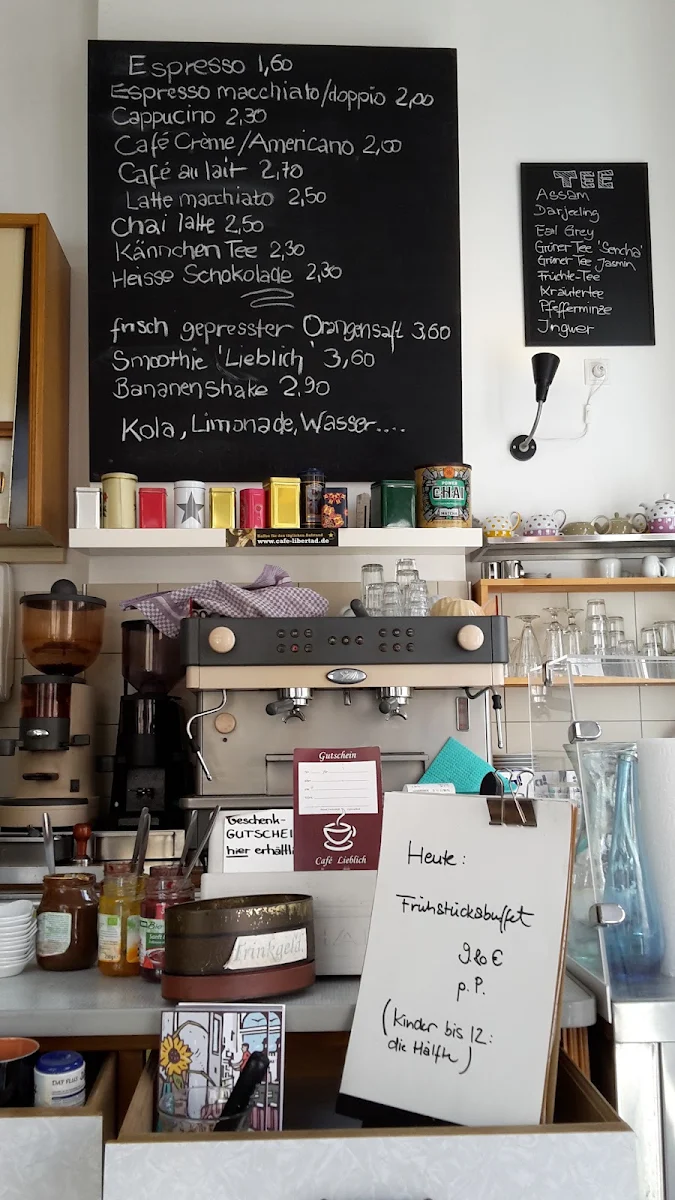 Espresso 1,60
Espresso macchiato/doppio 2,00
Cappucino 2,30
Café Crème/Americano 2,00
Café au lait 2,70
Latte macchiato 2,50
Chai latte 2,50
Kännchen Tee 2,30
Heisse Schokolade 2,30
frisch gepresster Orangensaft 3,60
Smoothie 'Lieblich' 3,60
Bananenshake 2,90
Kola, Limonade, Wasser....
TEE
Assam
Darjeeling
Earl Grey
Grüner Tee 'Sencha'
Grüner Tee Jasmin
Früchte-Tee
Kräutertee
Pfefferminze
Ingwer
POWER
CHAI
www.cafe-libertad.de
Gutschein
Café Lieblich
Geschenk-
GUTSCHEI
hier erhältl
Trinkgeld
Heute:
Frühstücksbuffet
9,80 €
p.P.
(Kinder bis 12:
die Hälfte)